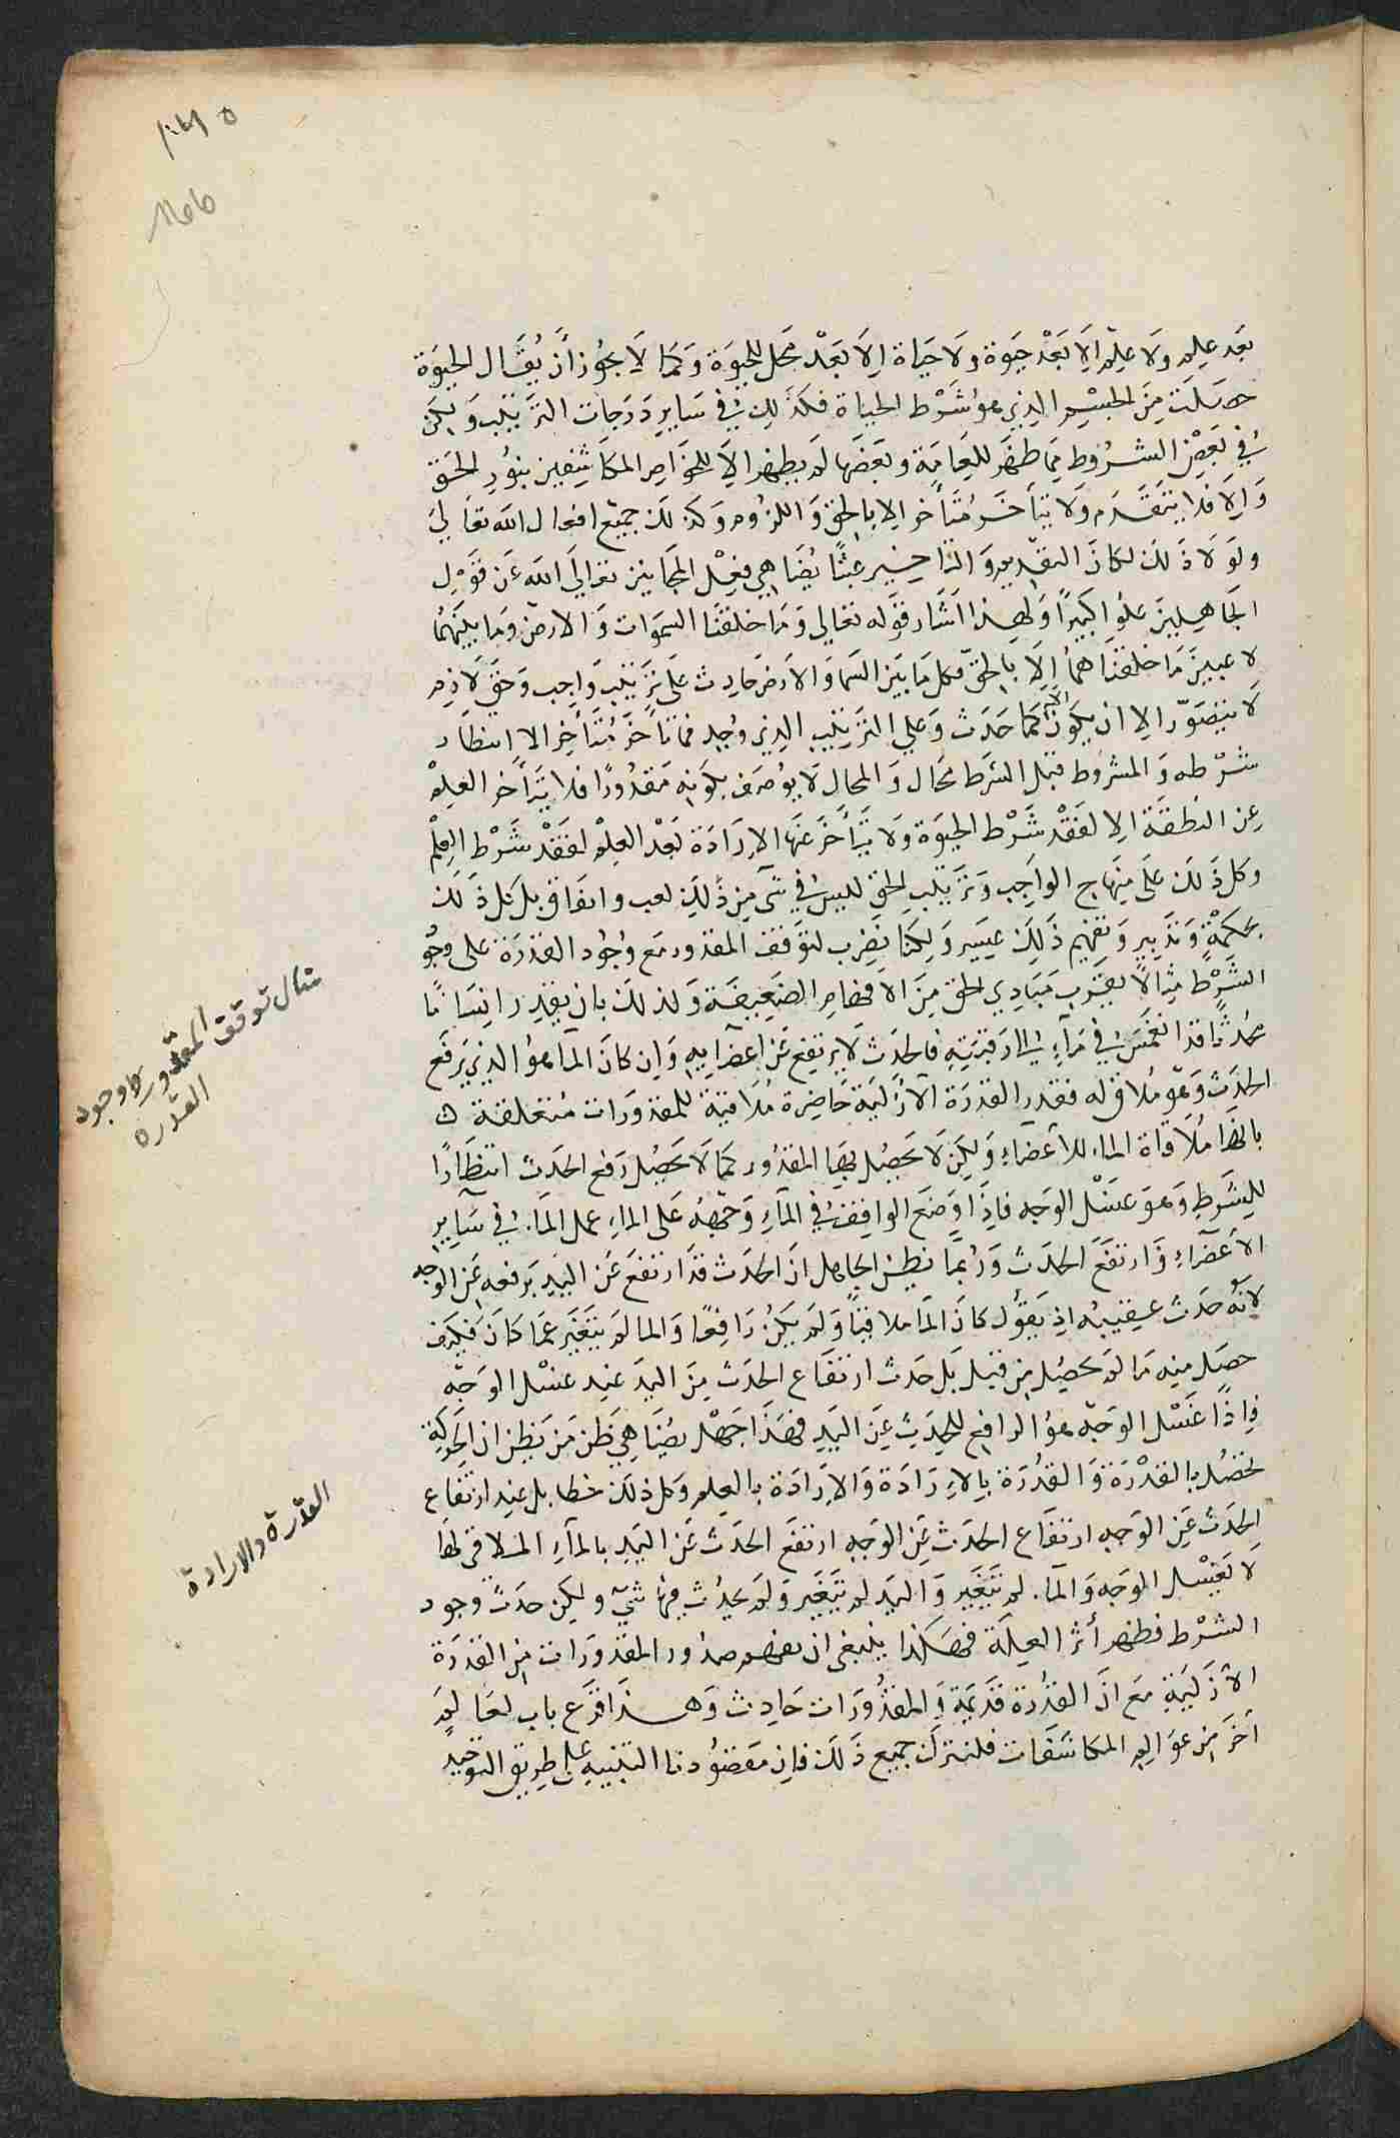 بعد علم ولا علم الا بعد حيوة ولا حياة الا بعد محل للحيوة وكما لا يجوز أن يقال الحيوة
حصلت من الجسم الذي هو شرط الحياة فكذلك في ساير درجات الترتيب ولكن
في بعض الشروط مما ظهر للعامة وبعضها لم يظهر الا للخواص المكاشفين بنور الحق
والا فلا يتقدم ولا يتأخر متأخر الا بالحق واللزوم وكذلك جميع افعال الله تعالى
ولولا ذلك لكان التقديم والتاخير عبثا يضاهي فعل المجانين تعالى الله عن قول
الجاهلين علوا كبيرا ولهذا اشار قوله تعالى وما خلقنا السموات والارض وما بينهما
لاعبين ما خلقناهما الا بالحق فكل ما بين السما والارض حادث على ترتيب واجب وحق لازم
لا يتصور الا ان يكون الا كما حدث وعلى الترتيب الذي وجد فما تأخر متأخر الا انتظار
شرطه والمشروط قبل الشرط محال والمحال لا يوصف بكونه مقدورا فلا يتأخر العلم
عن النطفة الا لفقد شرط الحيوة ولا يتأخر عنها الارادة بعد العلم لفقد شرط العلم
وكل ذلك على منهاج الواجب وترتيب الحق لليس في شي من ذلك لعب واتفاق بل كل ذلك
بحكمة وتدبير وتفهيم ذلك عسير ولكنا نضرب لتوقف المقدور مع وجود القدرة على وجو
الشرط مثالا يقرب مبادي الحق من الافهام الضعيفة ولذلك بان يقدر انسانا
محدثا قد انغمس في ماء الى رقبته فالحدث لا يرتفع عن اعضايه وان كان الما هو الذي يرفع
الحدث وهو ملاق له فقدر القدرة الازلية حاضرة ملاقية للمقدورات متعلقة
بالها ملاقاة الما للاعضاء ولكن لا يحصل بها المقدور كما لا يحصل رفع الحدث انتظارا
للشرط وهو غسل الوجه فاذا وضع الواقف في الماء وجهه على الماء عمل الما في ساير
الاعضاء وارتفع الحدث وربما يظن الجاهل ان الحدث قد ارتفع عن اليد برفعه عن الوجه
لانه حدث عقيبه اذ يقول كان الما ملاقيا ولم يكن رافعا والما لم يتغير عما كان فكيف
حصل منه ما لم يحصل من قبل بل حدث ارتفاع الحدث من اليد عند غسل الوجه
فاذا غسل الوجه هو الرافع للحدث عن اليد فهذا جهل يضاهي ظن من يظن ان الحركة
تحصل بالقدرة والقدرة بالارادة والارادة بالعلم وكل ذلك خطا بل عند ارتفاع
الحدث عن الوجه ارتفاع الحدث عن الوجه ارتفع الحدث عن اليد بالماء الملاقى لها
لا بغسل الوجه والما لم يتغير واليد لم تتغير ولم يحدث فيها شي ولكن حدث وجود
الشرط فظهر أثر العلة فهكذا ينبغى ان تفهم صدور المقدورات من القدرة
الازلية مع ان القدرة قديمة والمقدورات حادث وهذا قرع باب لعالم
أخر من عوالم المكاشفات فلنترك جميع ذلك فان مقصودنا التنبيه على طريق التوحيد
مثال توقف المقدور وجود
القدرة
القدرة والارادة